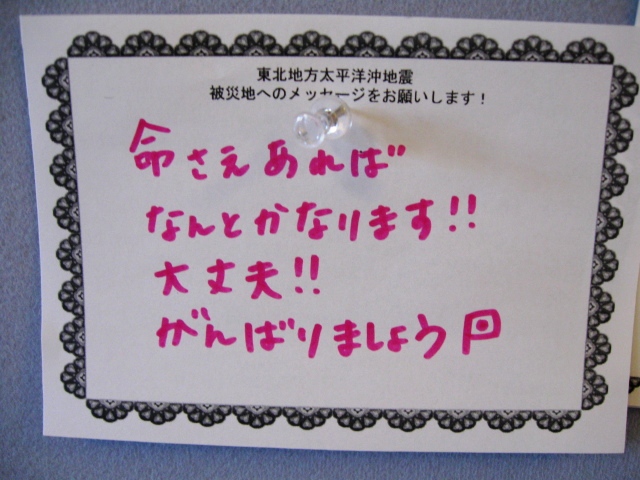 東北地方太平洋沖地震
被災地へのメッセージをお願いします！
命さえあれば
なんとかなります!!
大丈夫!!
がんばりましょう